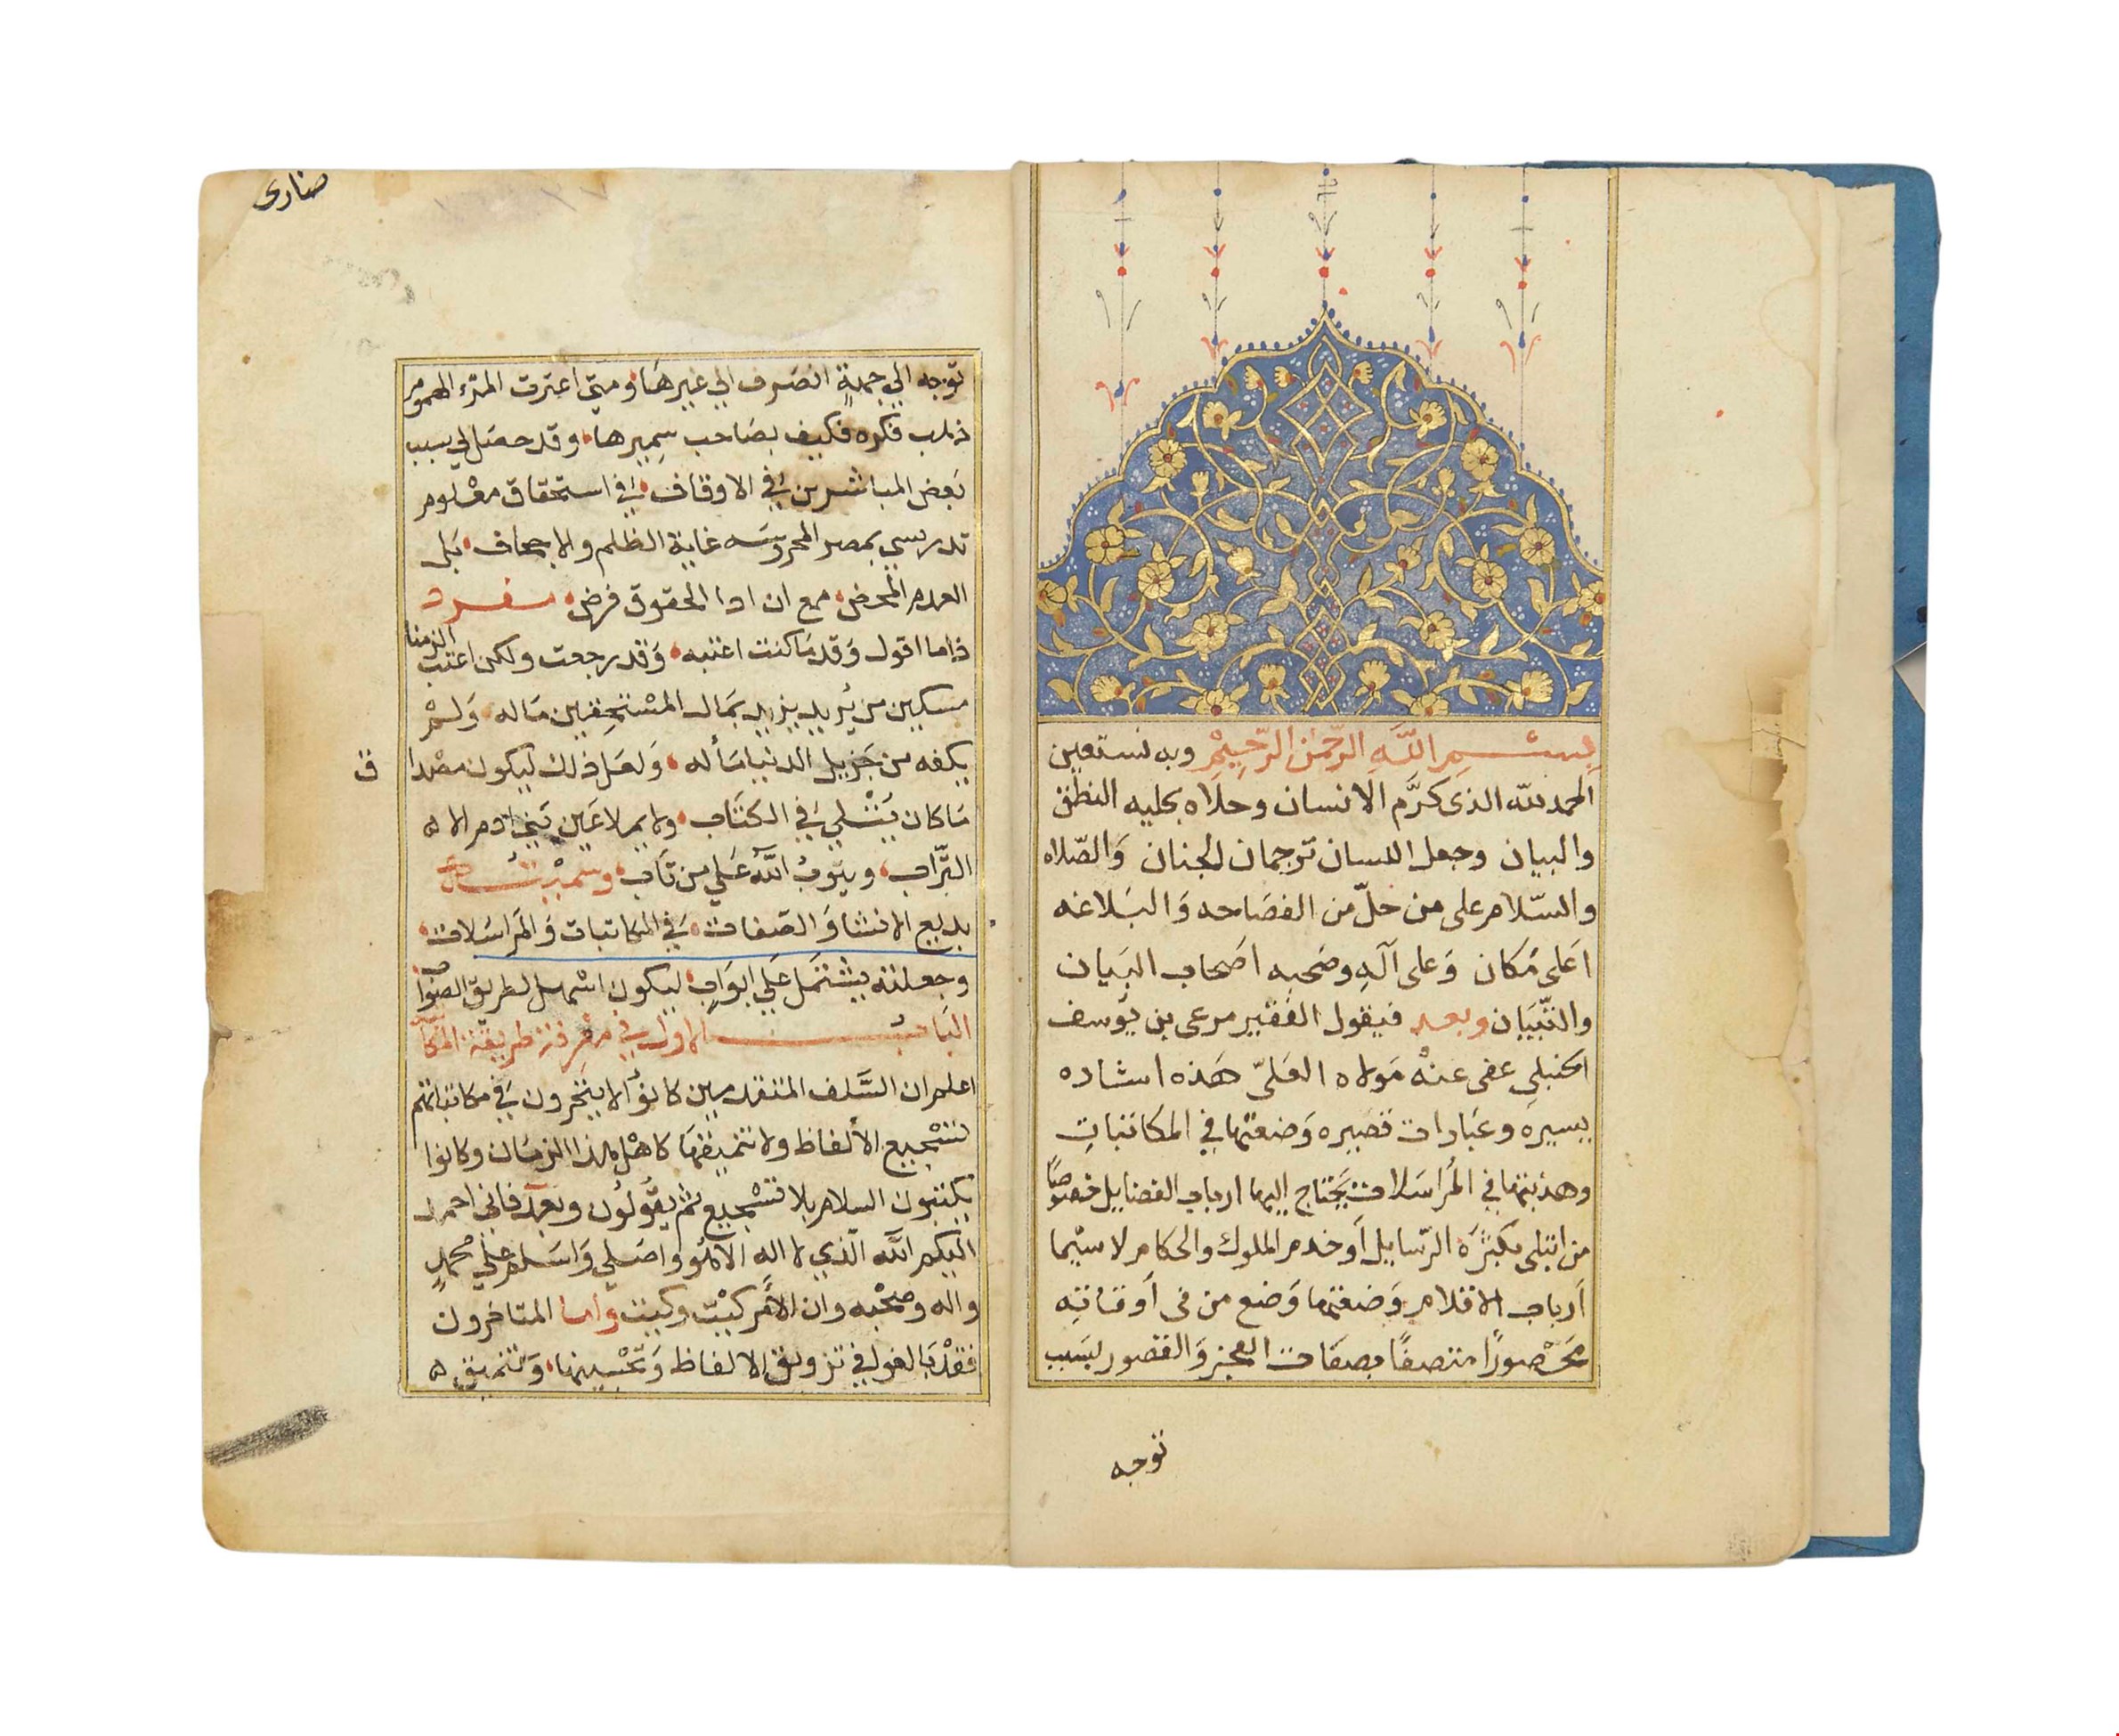 بِسْمِ اللَّهِ الرَّحْمٰنِ الرَّحِيْمِ وبه نستعين
الحمد لله الذى كرَّم الانسان وحلاه بحليه النطق
والبيان وجعل اللسان ترجمان الجنان وَالصّلاه
والسّلام على من حلّ من الفصَاحه وَالبَلاغه
اَعلى مُكان وَعلى آلهِ وصَحبه اصَحاب البَيان
والتّبيَان وبعد فيقول الفَقير مرعى بن يُوسف
الحنبلي عفى عنهْ مَولاه العَلىّ هَذه اشاره
يسيرَه وعبَارات قصَيره وَضعتها في المكاتباتِ
وهذبتها في المُراسَلات يَحتاج اليها ارباب الفضايل خصوصًا
من ابتلى بكثرَة الرّسايل أَو خدم الملوك والحكام لا سيّما
أَرباب الاقلام وَضعتها وَضع من فى أَوقاتهِ
مَحْصورًا متصفًا بصفَات العجز وَالقصور بسَبب
توجه
ضارى
توجه الي جهةٍ انصَرف الي غيرهَا ومتى اعترت المرء الهموم
ذهب فكره فكيف بصَاحب سميرها وقد حصَل لي بسبب
بَعض المباشرين في الاوقاف في استحقاق معْلوم
تدريسي بمصر المحروسَه غاية الظلم والاجحاف بَل
العدم المحض مع ان ادا الحقوق فرض مفرد
فاما اقول وَقد مَا كنت اعتبه وَقد رجعت ولكن اعتب الزمنا
مسكين من يُريد يزيد بمَال المسْتحقين مَاله وَلمْ
يكفه من جَزيل الدنيا مَاْله وَلعَل ذلك ليكون مصْدا
ق
مَا كان يُتْلي في الكتَاب ولا يملا عَين بَني ادم الا
التّراب ويتَوبُ اللَّه عَلي من تَاب وسميْتُه
بديع الانشا وَالصّفات في المكاتبات وَالمرَاسَلات
وجعلته يشتمَل عَلي ابوَابٍ ليكون اسْهل لطريق الصوَاب
البَابُ الاول في معْرفة طريقة المكَا
اعلم ان السَّلف المتقدمين كانوُا لا يتحرون في مكاتباتهم
تسْجيع الألفاظ ولا تنميقهَا كاهْل هذا الزمَان وكانوا
يكتبون السلام بلا تسْجيع ثم يقُولوُن وبَعد فاني احمد
اليكم اللَّه الّذي لا اله الا هُو واصَلي وَاسَلم عَلي محمدٍ
واله وصحْبه وان الأَمر كيْت وكيت وامَا المتاخرون
فقدْ بَالغوا في تزويق الالفاظ وَتحْسِينها وَتنميق